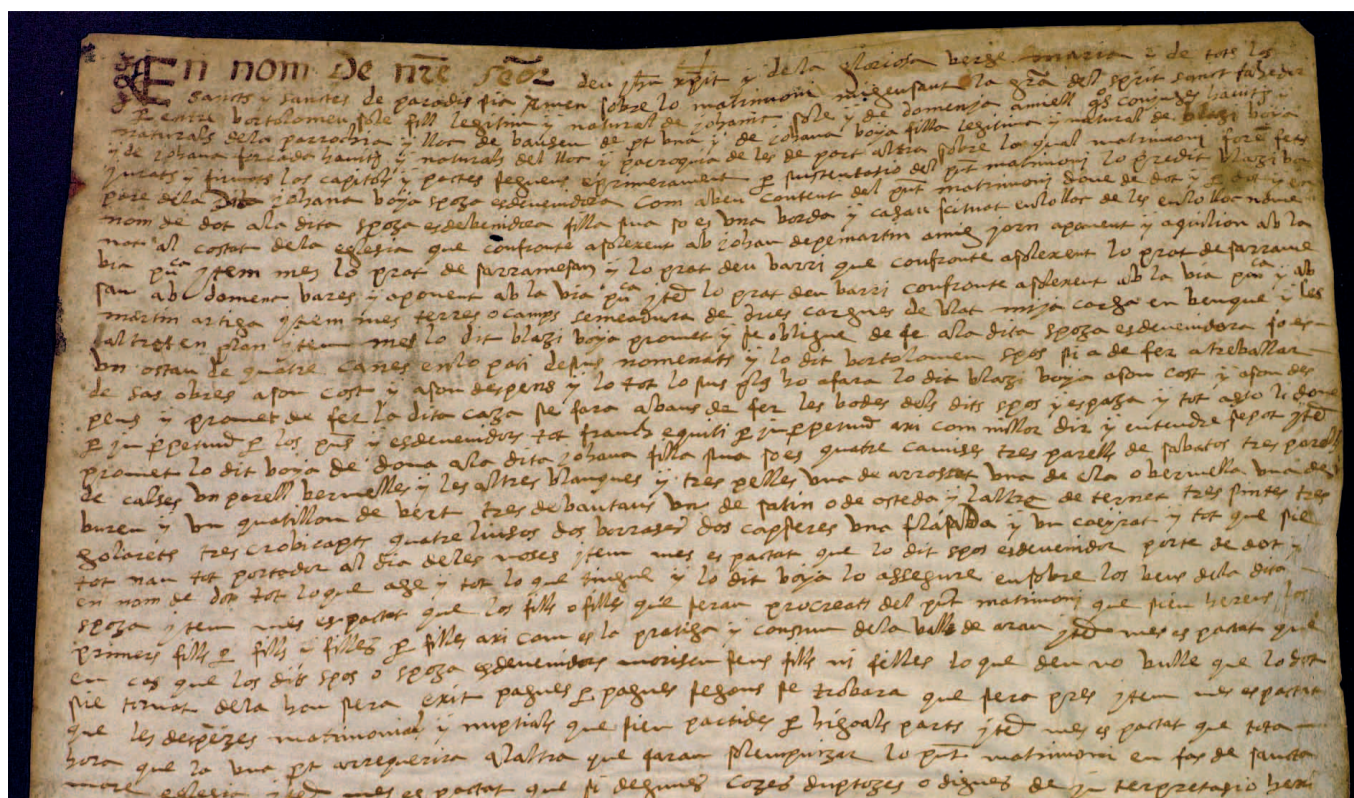 En nom de nre señor deu jhu xpist y dela gloriosa verge maria e de tots los
sancts y sanctes de paradis sia amen sobre lo matrimoni migensant la gra del sprit sanct fahedor
entre bortolomeu sole fill legitim y natural de johame sole y de domenja amiell qs conjuges havits y
naturals dela parrochia y lloc de bausen de pt una y de johana boya filla legitima y natural de blazi boya
y de johana forcada havits y naturals del lloc y parroquia de les de part altra sobre lo qual matrimoni foren fets
jurats y firmats los capitols y pactes seguens e primerament per sustentatio del pnt matrimoni lo predit blazi bo
pare dela dita johana boya spoza esdevenidora com aben content del pnt matrimoni done de dot y per dot y en
nom de dot ala dita spoza esdebenidora filla sua so es una borda y casau scituat en lo lloc de les en lo lloc nomme
nat al costat dela eglesia que confronte asolexent ab johan depemartin amieg jorn aponent y aquilion ab la
via puca jtem mes lo prat de sarramesan y lo prat deu barri que confronte asolexent lo prat de sarrame
san ab doment bares y aponent ab la via puca jtem lo prat deu barri confronte asolexent ab la via puca y ab
martin artiga jtem mes terres o camps semeadura de dues cargues de blat mija carga en benque y les
altres en plan jtem mes lo dit blazi boya promet y se obligue de fe ala dita spoza esdevenidora so es
un ostau de quatre canes en lo pati desus nomenats y lo dit bortolomeu spos si a de fer a treballar
de sas obres a son cost y a son despens y lo tot lo sus ho afara lo dit blazi boya a son cost y a son des
pens y promet de fer la dita caza se fara abans de fer les bodes dels dits spos y espoza y tot asso li done
per jn perpetuu per los pns y esdevenidors tot franch e quiti per jn perpetuu axi com millor dir y entendre se pot jtem
promet lo dit boya de dona ala dita johana filla sua so es quatre camises tres parells de sabatos tres parells
de calses un parell vermelles y les altres blanques y tres pelles una de arrosset una de ola o bermella una de
buren y un quatillon de vert tres debautaus uns de satin o de osteda y laltre de ternet tres sintes tres
golarets tres crobicapts quatre linsos dos borrases dos capseres una flassada y un cocyrat y tot que sie
tot nau tot portador al dia deles noses jtem mes es pactat que lo dit spos esdevenidor porte de dot y
en nom de dot tot lo que age y tot lo que tingue y lo dit boya lo assegure en sobre los bens dela dita
spoza jtem mes es pactat que los fills o filles que seran procreats del pnt matrimoni que sien hereus los
primers fills per fills y filles per filles axi com es la pratiga y constum dela vall de aran jtem mes es pactat que
en cas que los dits spos o spoza esdevenidors morissen sens fills ni filles lo que deu no bulle que lo dot
sie tornat dela hon sera exit pagues per pagues segons se trobara que sera pres jtem mes es pactat
que les despezes matrimonials y nuptials que sien partides per higoals parts jtem mes es pactat que tota
hora que la una pt arrequerira alaltra que faran solempnizar lo pnt matrimoni en fas de sancta
mare eglesia jtem mes es pactat que si degunes cozes duptozes o dignes de jnterpretasio